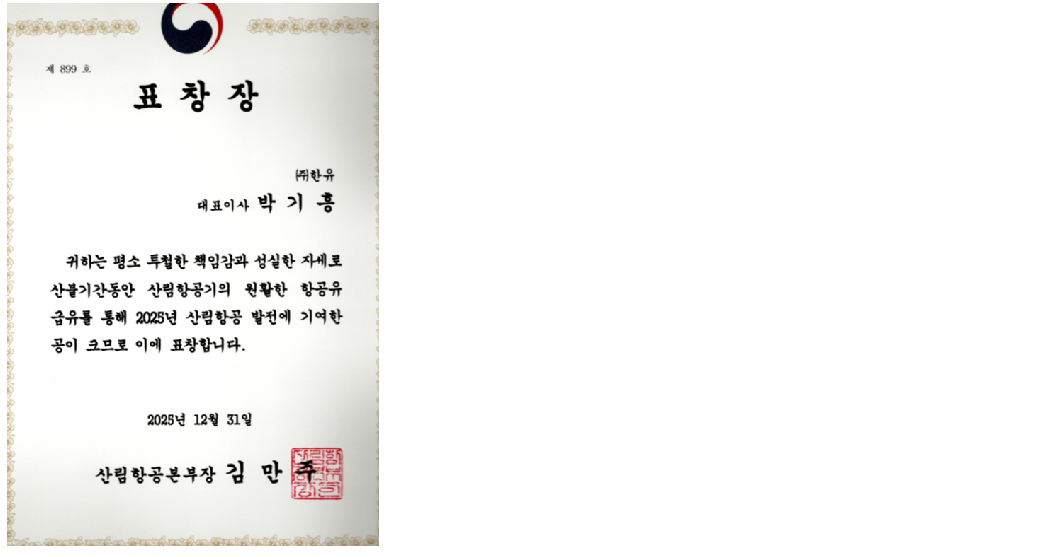 제 899 호
표창장
㈜한유
대표이사 박기흥
귀하는 평소 투철한 책임감과 성실한 자세로
산불기간동안 산림항공기의 원활한 항공유
급유를 통해 2025년 산림항공 발전에 기여한
공이 크므로 이에 표창합니다.
2025년 12월 31일
산림항공본부장 김만주